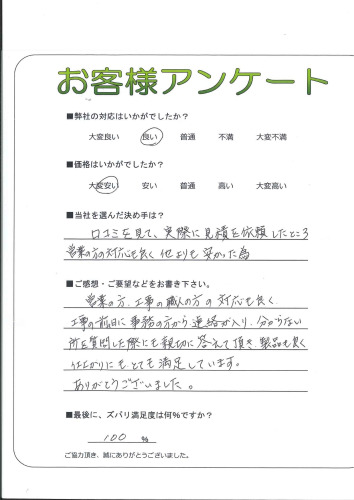 お客様アンケート
■弊社の対応はいかがでしたか?
大変良い 良い 普通 不満 大変不満
■価格はいかがでしたか?
大変安い 安い 普通 高い 大変高い
■当社を選んだ決め手は?
口コミを見て、実際に見積を依頼したところ
営業の方の対応も良く他よりも安かった為
■ご感想・ご要望などをお書き下さい。
営業の方、工事の職人の方の対応も良く、
工事の前日に事務の方から連絡が入り、分からない
所を質問した際にも親切に答えて頂き、製品も良く
仕上がりにもとても満足しています。
ありがとうございました。
■最後に、ズバリ満足度は何%ですか?
100 %
ご協力頂き、誠にありがとうございました。